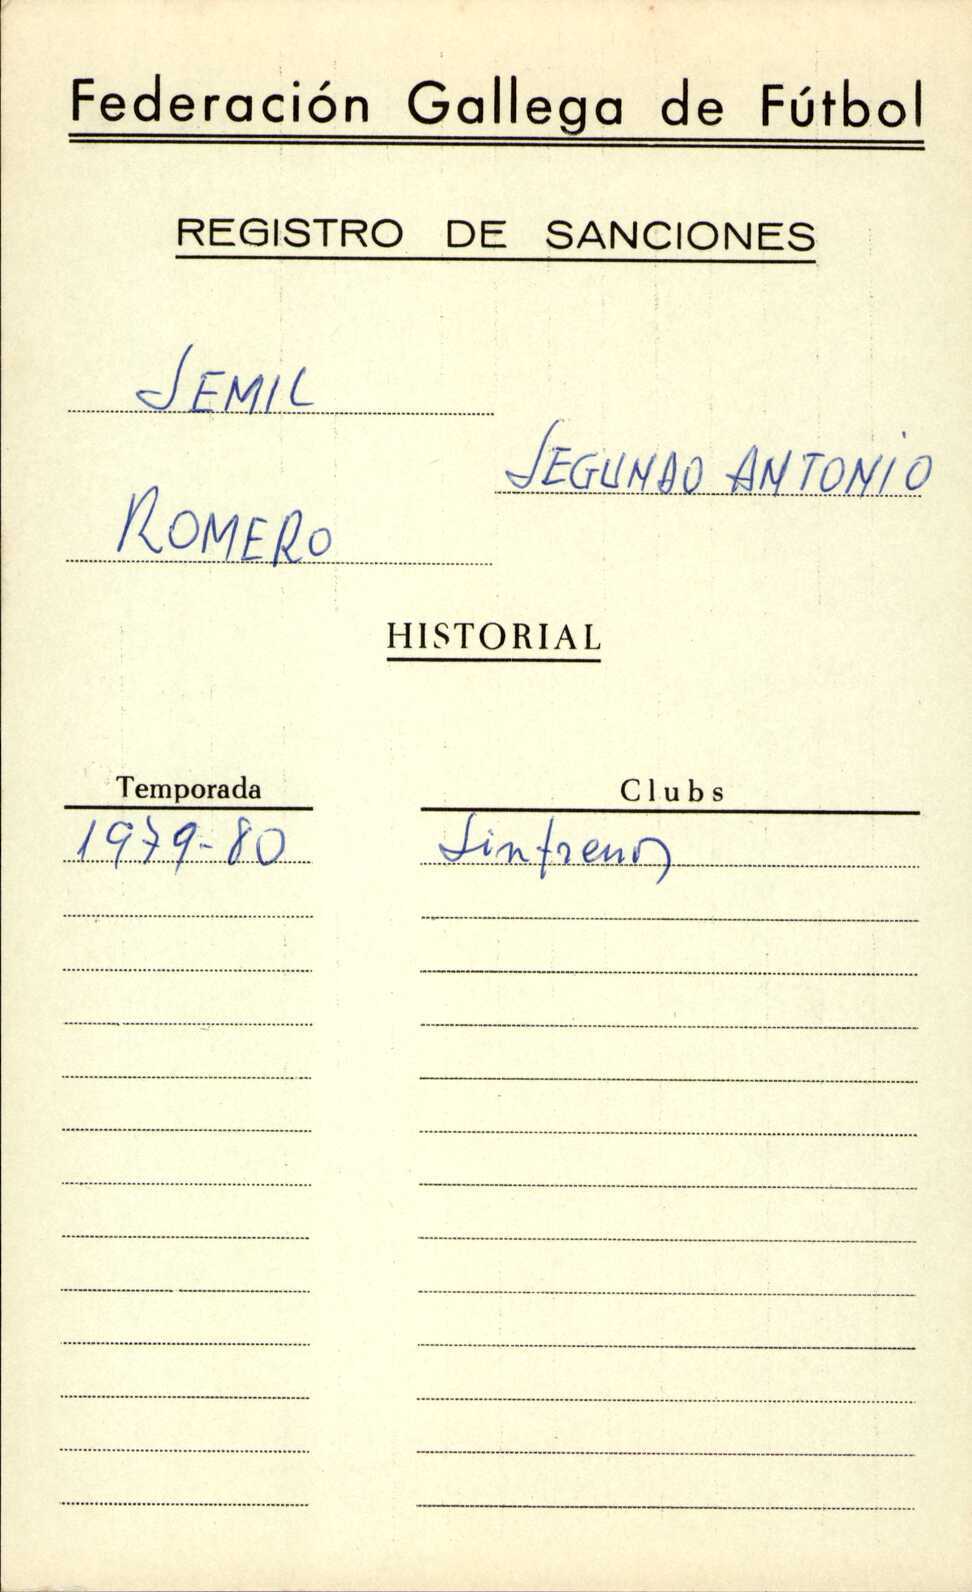 Federación Gallega de Fútbol
REGISTRO DE SANCIONES
SEMIL
SEGUNDO ANTONIO
ROMERO
HISTORIAL
Temporada Clubs
1979-80 Sinfrenos